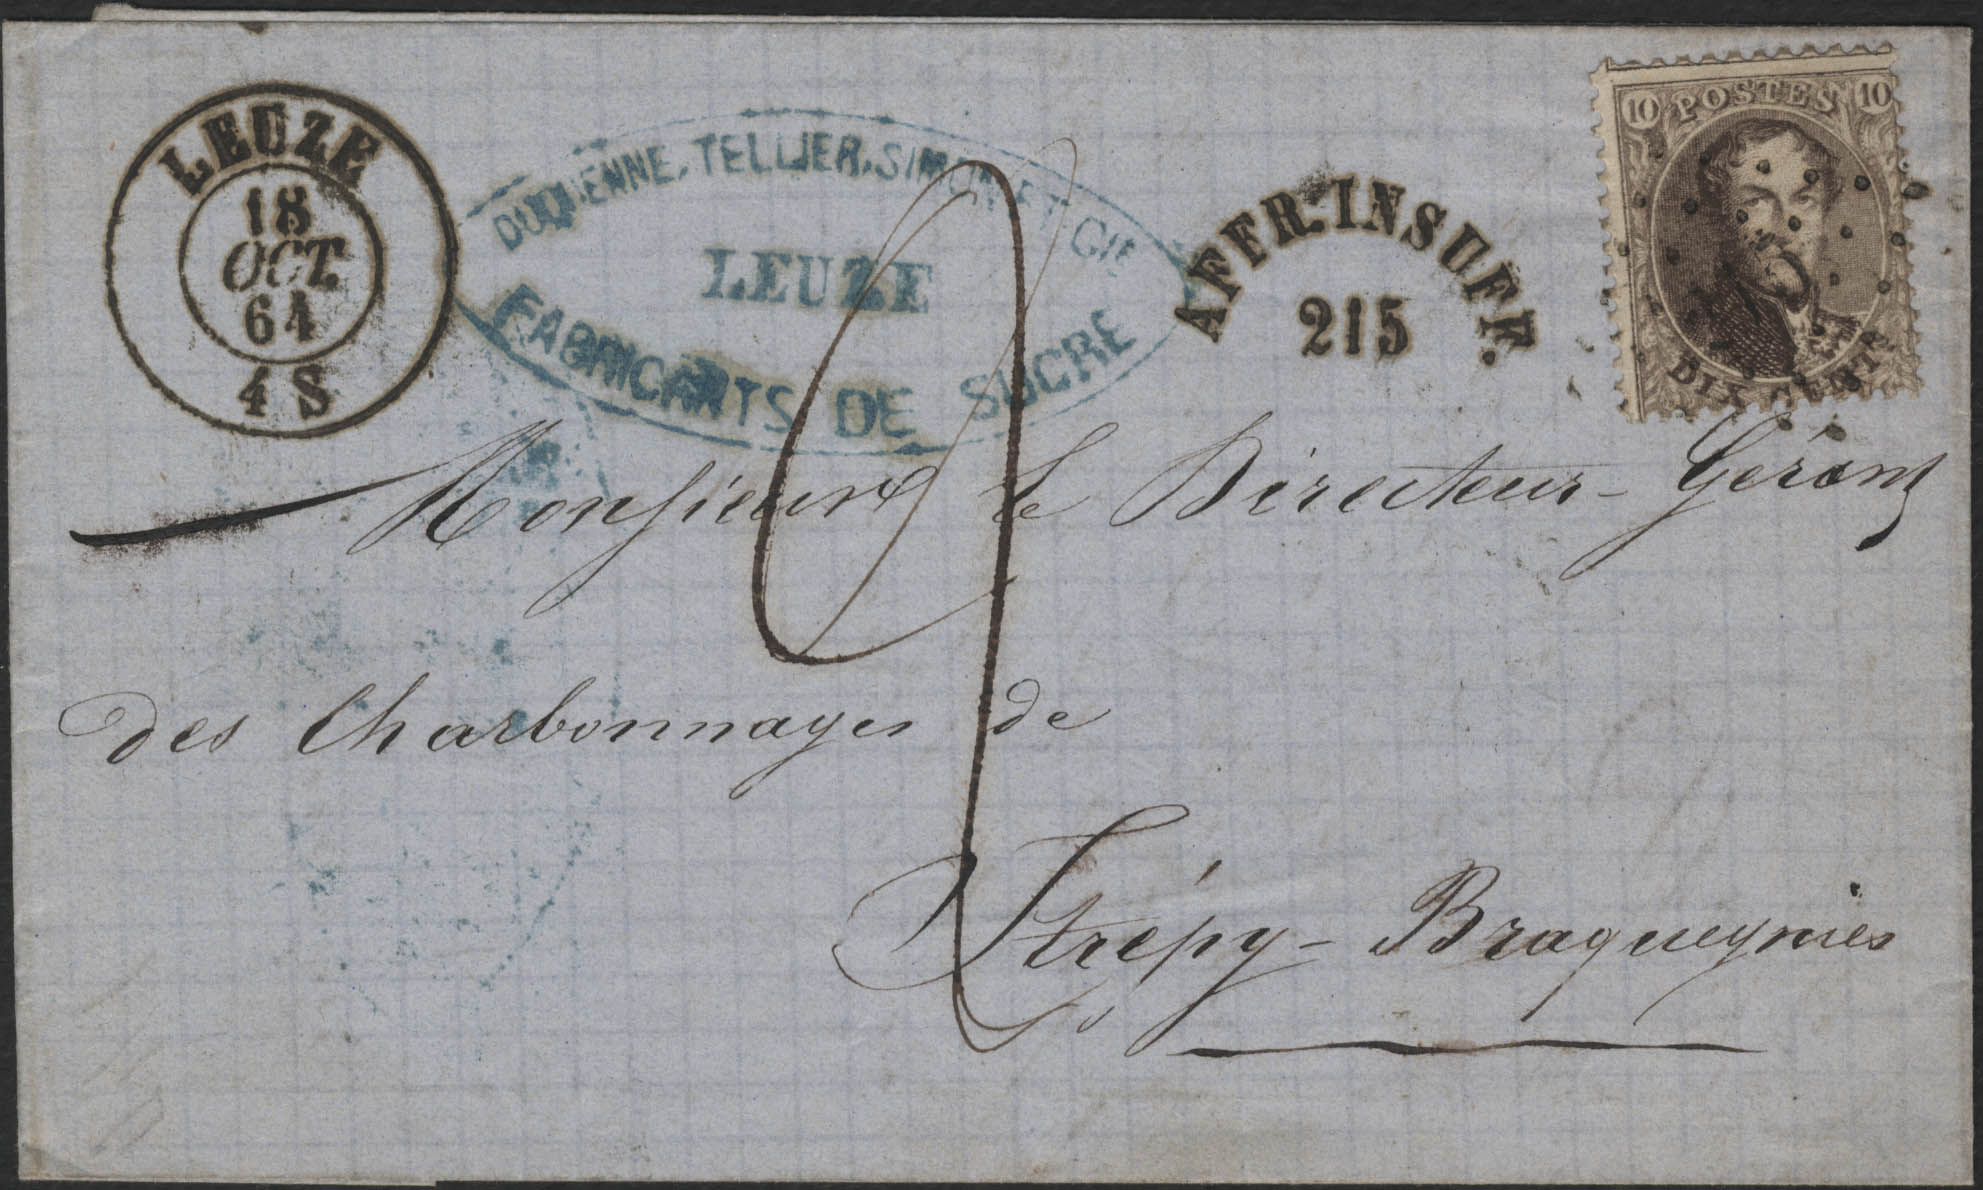 LEUZE
18
OCT.
64
4 S
DUQUENNE, TELLIER, SIMON ET CIE
LEUZE
FABRICANTS DE SUCRE
AFFR. INSUFF.
215
10 POSTES 10
DIX CENTS
2
Monsieur le Directeur-Gérant
des Charbonnages de
Strépy-Braquegnies